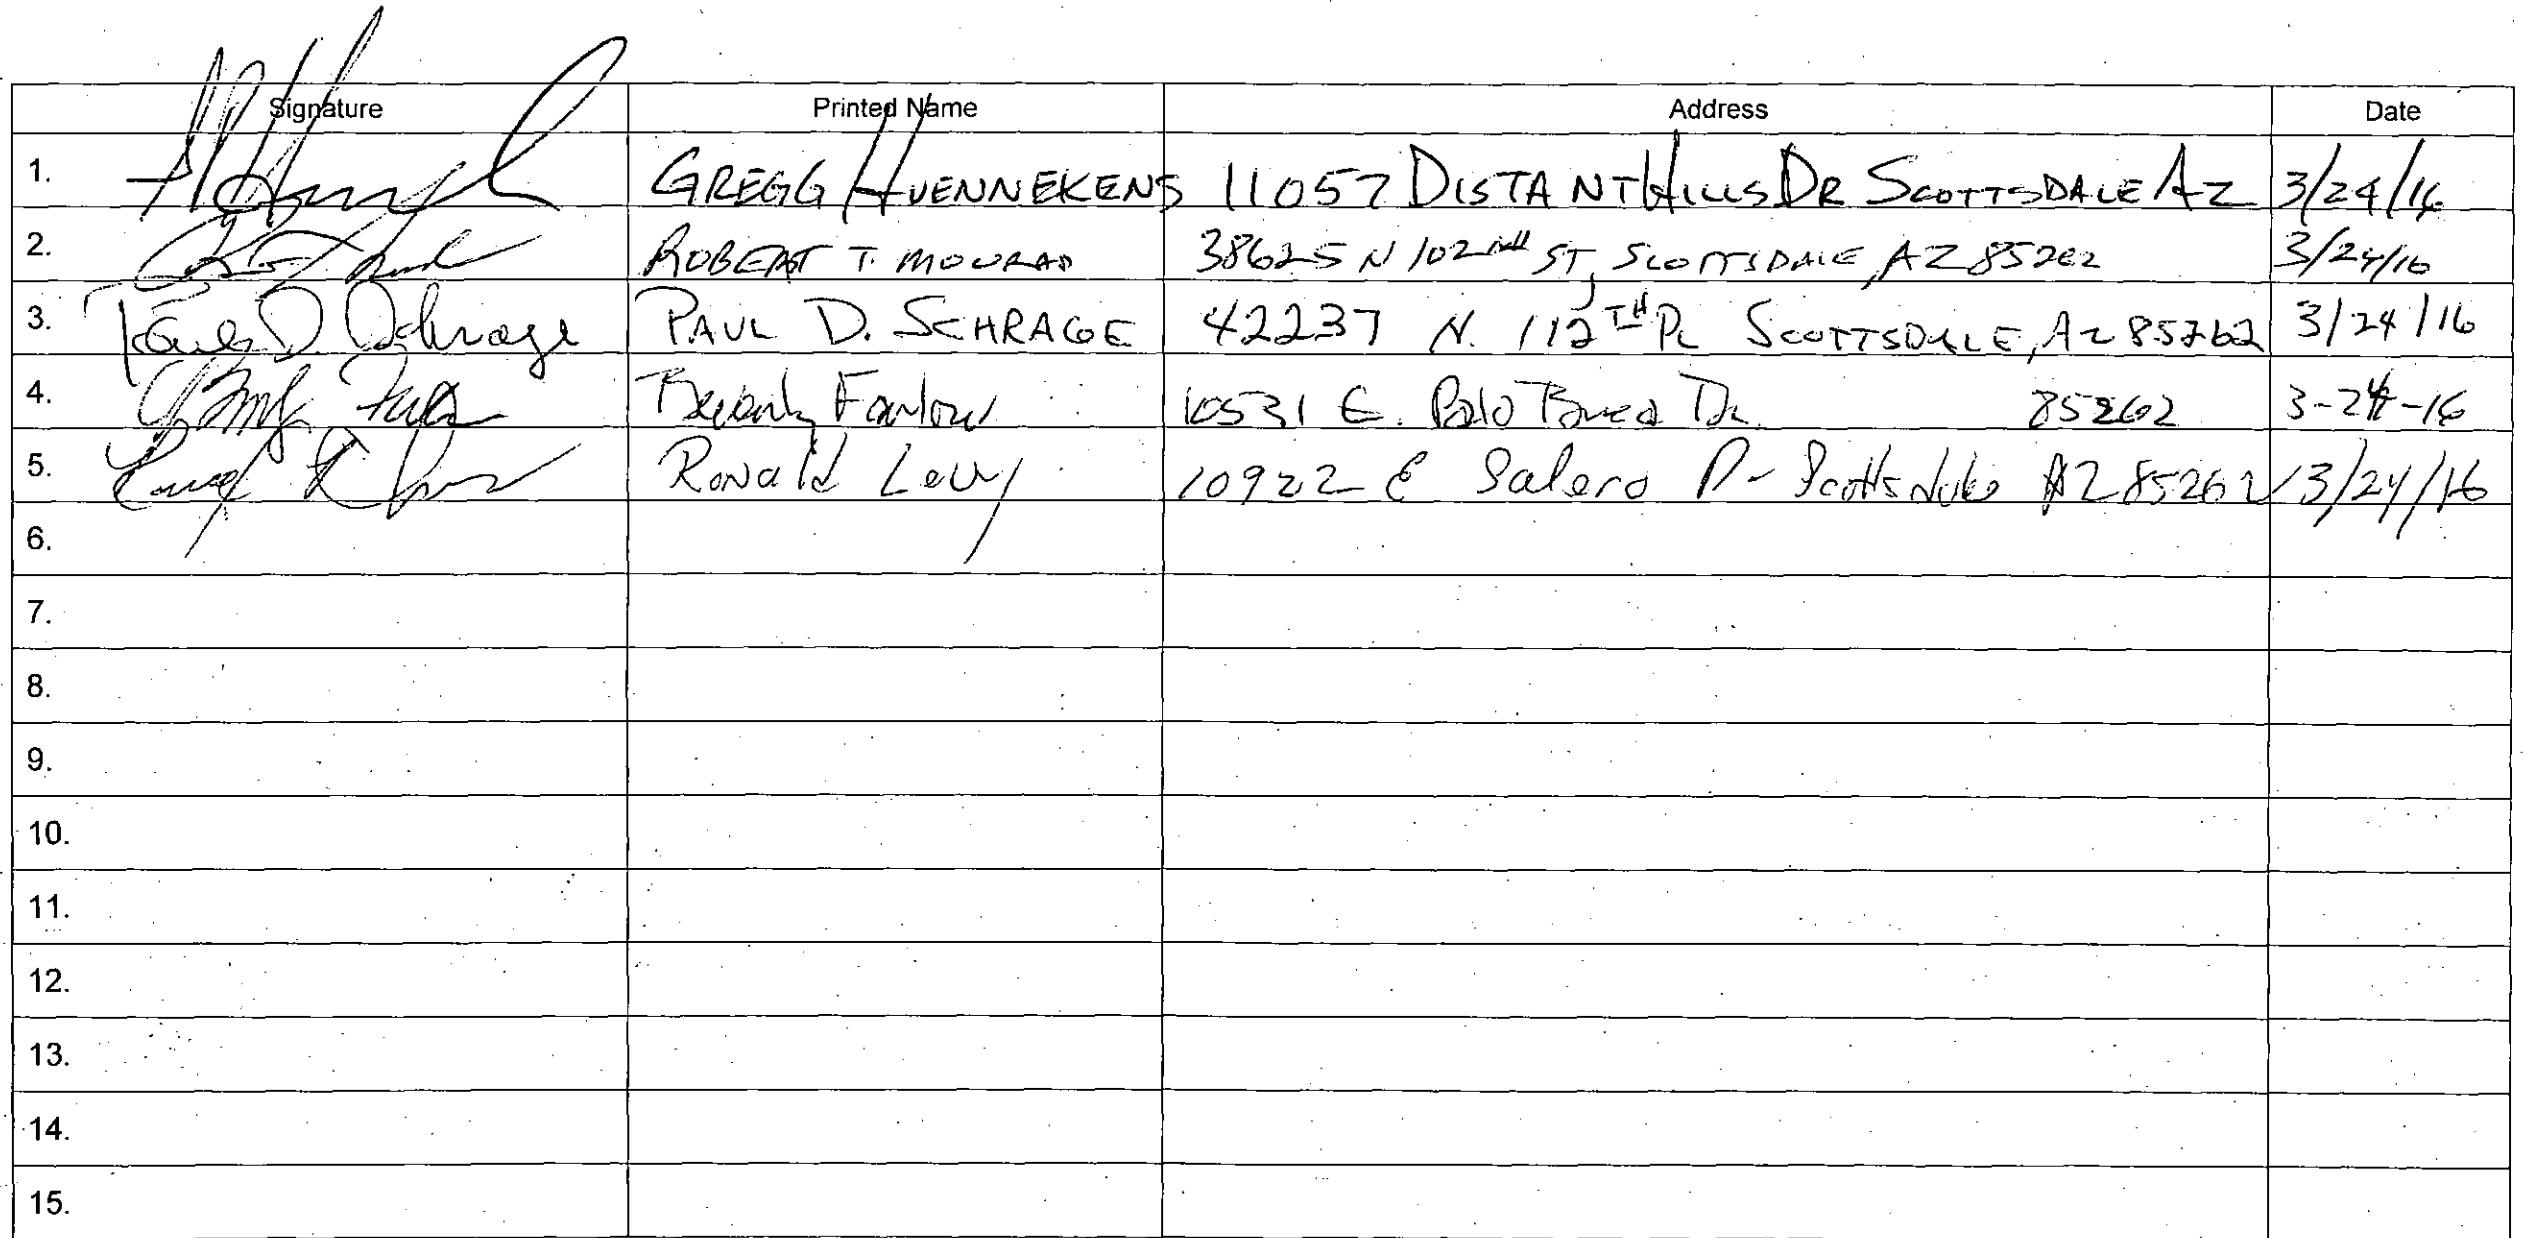 Signature Printed Name Address Date
1. GREGG HUENNEKENS 11057 DISTANT HILLS DR SCOTTSDALE AZ 3/24/16
2. ROBERT T. MOURAD 38625 N 102nd ST, SCOTTSDALE, AZ 85262 3/24/16
3. Paul D. Schrage PAUL D. SCHRAGE 42237 N. 112TH PL SCOTTSDALE, AZ 85262 3/24/16
4. Beverly Farlow 10531 E. Palo Brea Dr. 85262 3-24-16
5. Ronald Levy 10922 E Salero Dr Scottsdale AZ 85262 3/24/16
6.
7.
8.
9.
10.
11.
12.
13.
14.
15.